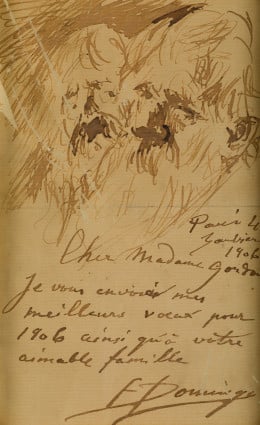 Paris 4
Janvier
1906
Cher Madame Gordon
Je vous envoie mes
meilleurs voeux pour
1906 ainsi qu'à votre
aimable famille
E Domingo